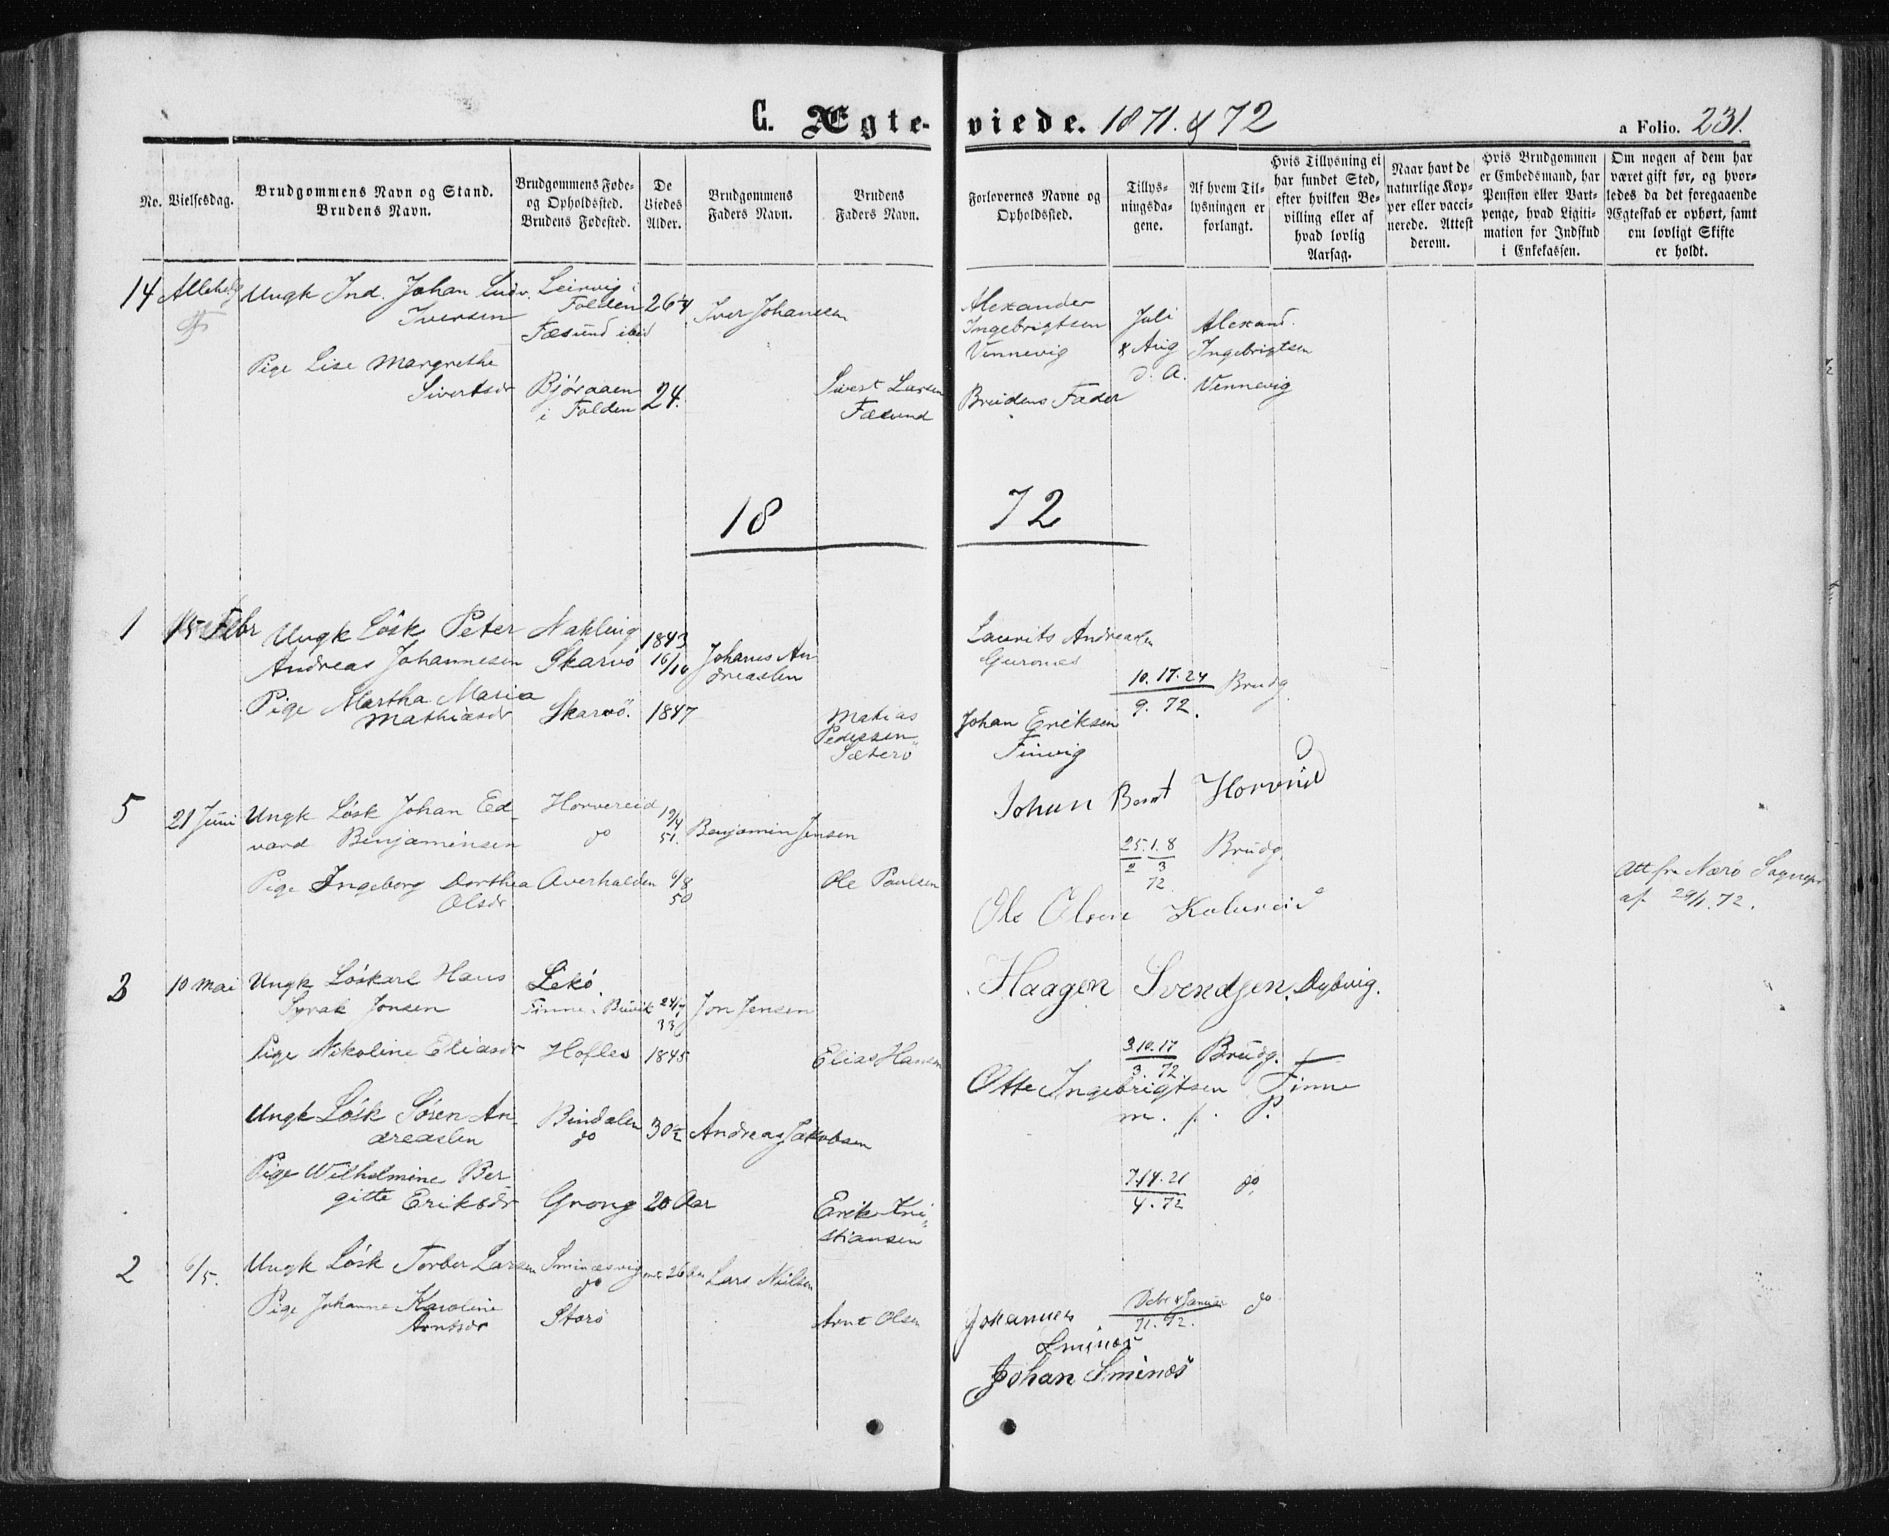 C. Ægteviede. 1871. & 72
a Folio. 231.
No.
Vielsesdag.
Brudgommens Navn og Stand.
Brudens Navn.
Brudgommens Føde-
og Opholdssted.
Brudens Fødested.
De
Viedes
Alder.
Brudgommens
Faders Navn.
Brudens
Faders Navn.
Forlovernes Navne og
Opholdssted.
Tillys-
ningsda-
gene.
Af hvem Til-
lysningen er
forlangt.
Hvis Tillysning ei
har fundet Sted,
efter hvilken Be-
villing eller af
hvad lovlig
Aarsag.
Naar havt de
naturlige Kop-
per eller vacci-
nerede. Attest
derom.
Hvis Brudgommen
er Embedsmand, har
Pension eller Vart-
penge, hvad Ligiti-
mation for Indskud
i Enkekassen.
Om nogen af dem har
været gift før, og hvor-
ledes da det foregaaende
Ægteskab er ophørt, samt
om lovligt Skifte
er holdt.
14 Allehelg
Ungk Ind. Johan Ludv.
Iversen
Leirvig i
Folden
Fæsund ibid
26¼
Iver Johansen
Alexander
Ingebrigtsen
Vennevig
Juli
& Aug
d. A.
Alexand.
Ingebrigtsen
Vennevig
Pige Lise Margrethe
Sivertsdr
Bjøraaen
i Folden
24.
Sivert Larsen
Fæsund
Brudens Fader
18 72
1 15 Febr
Ungk Løsk Peter
Andreas Johannesen
Nakling
Skarvø
1843
16/10
Johanes An
dreassen
Laurits Andreasen
Gurones
10. 17. 24
9. 72.
Brudg.
Pige Martha Maria
Mathiasdr
Skarvø.
1847
Matias
Pedersen
Sæterø
Johan Eriksen
Finvig
5 21 Juni
Ungk Løsk Johan Ed-
vard Benjaminsen
Horvereid
do
19/4
51.
Benjamin Jensen
Johan Bernt Horvrid
25. 1. 8
2 3
72
Brudg.
Pige Ingeborg Dorthea
Olsdr
Overhalden
6/8
50
Ole Paulsen
Ole Olsen Kalureid
Att fra Nærø Sognepr
af 29/1. 72.
3 10 Mai
Ungk Løskarl Hans
Syrak Jonsen
Lekø
Finne i Buvik
24/7
33
Jon Jensen
Haagen Svendsen. Dybvig.
Pige Nikoline Eliasdr
Hofles
1845
Elias Hansen
3. 10. 17
3. 72
Brudg.
Otte Ingebrigtsen Finne
m. f. P.
Ungk Løsk Søren An-
dreassen
Bindalen
do
30½
Andreas Jakobsen
Pige Wilhelmine Ber-
gitte Eriksdr
Grong
20 Aar
Erik Kri-
stiansen
7. 14. 21
4. 72
do
2 6/5.
Ungk Løsk Torber Larsen
Sminæsvig
do
26 Aar
Lars Nielsen
Pige Johanne Karoline
Arntsdr
Storø
Arnt Olsen
Johannes
Sminæs
Debr & Januar
71. 72.
do
Johan Sminæs